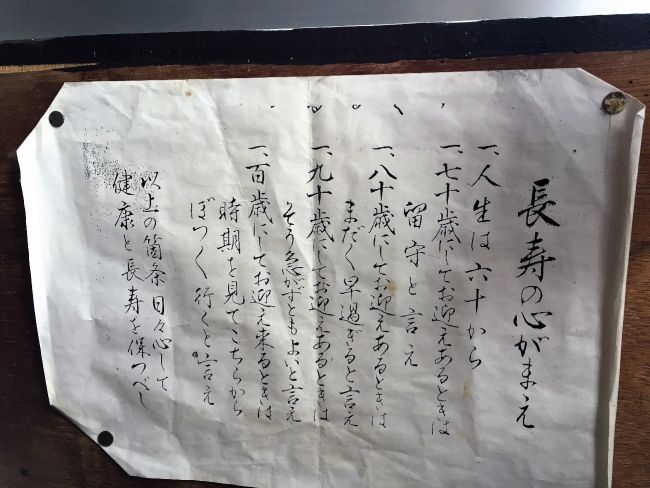 長寿の心がまえ
一、人生は六十から
一、七十歳にしてお迎えあるときは
留守と言え
一、八十歳にしてお迎えあるときは
まだ〱早過ぎると言え
一、九十歳にしてお迎えあるときは
そう急がずともよいと言え
一、百歳にしてお迎え来るときは
時期を見てこちらから
ぼつ〱行くと言え
以上の箇条日々心して
健康と長寿を保つべし